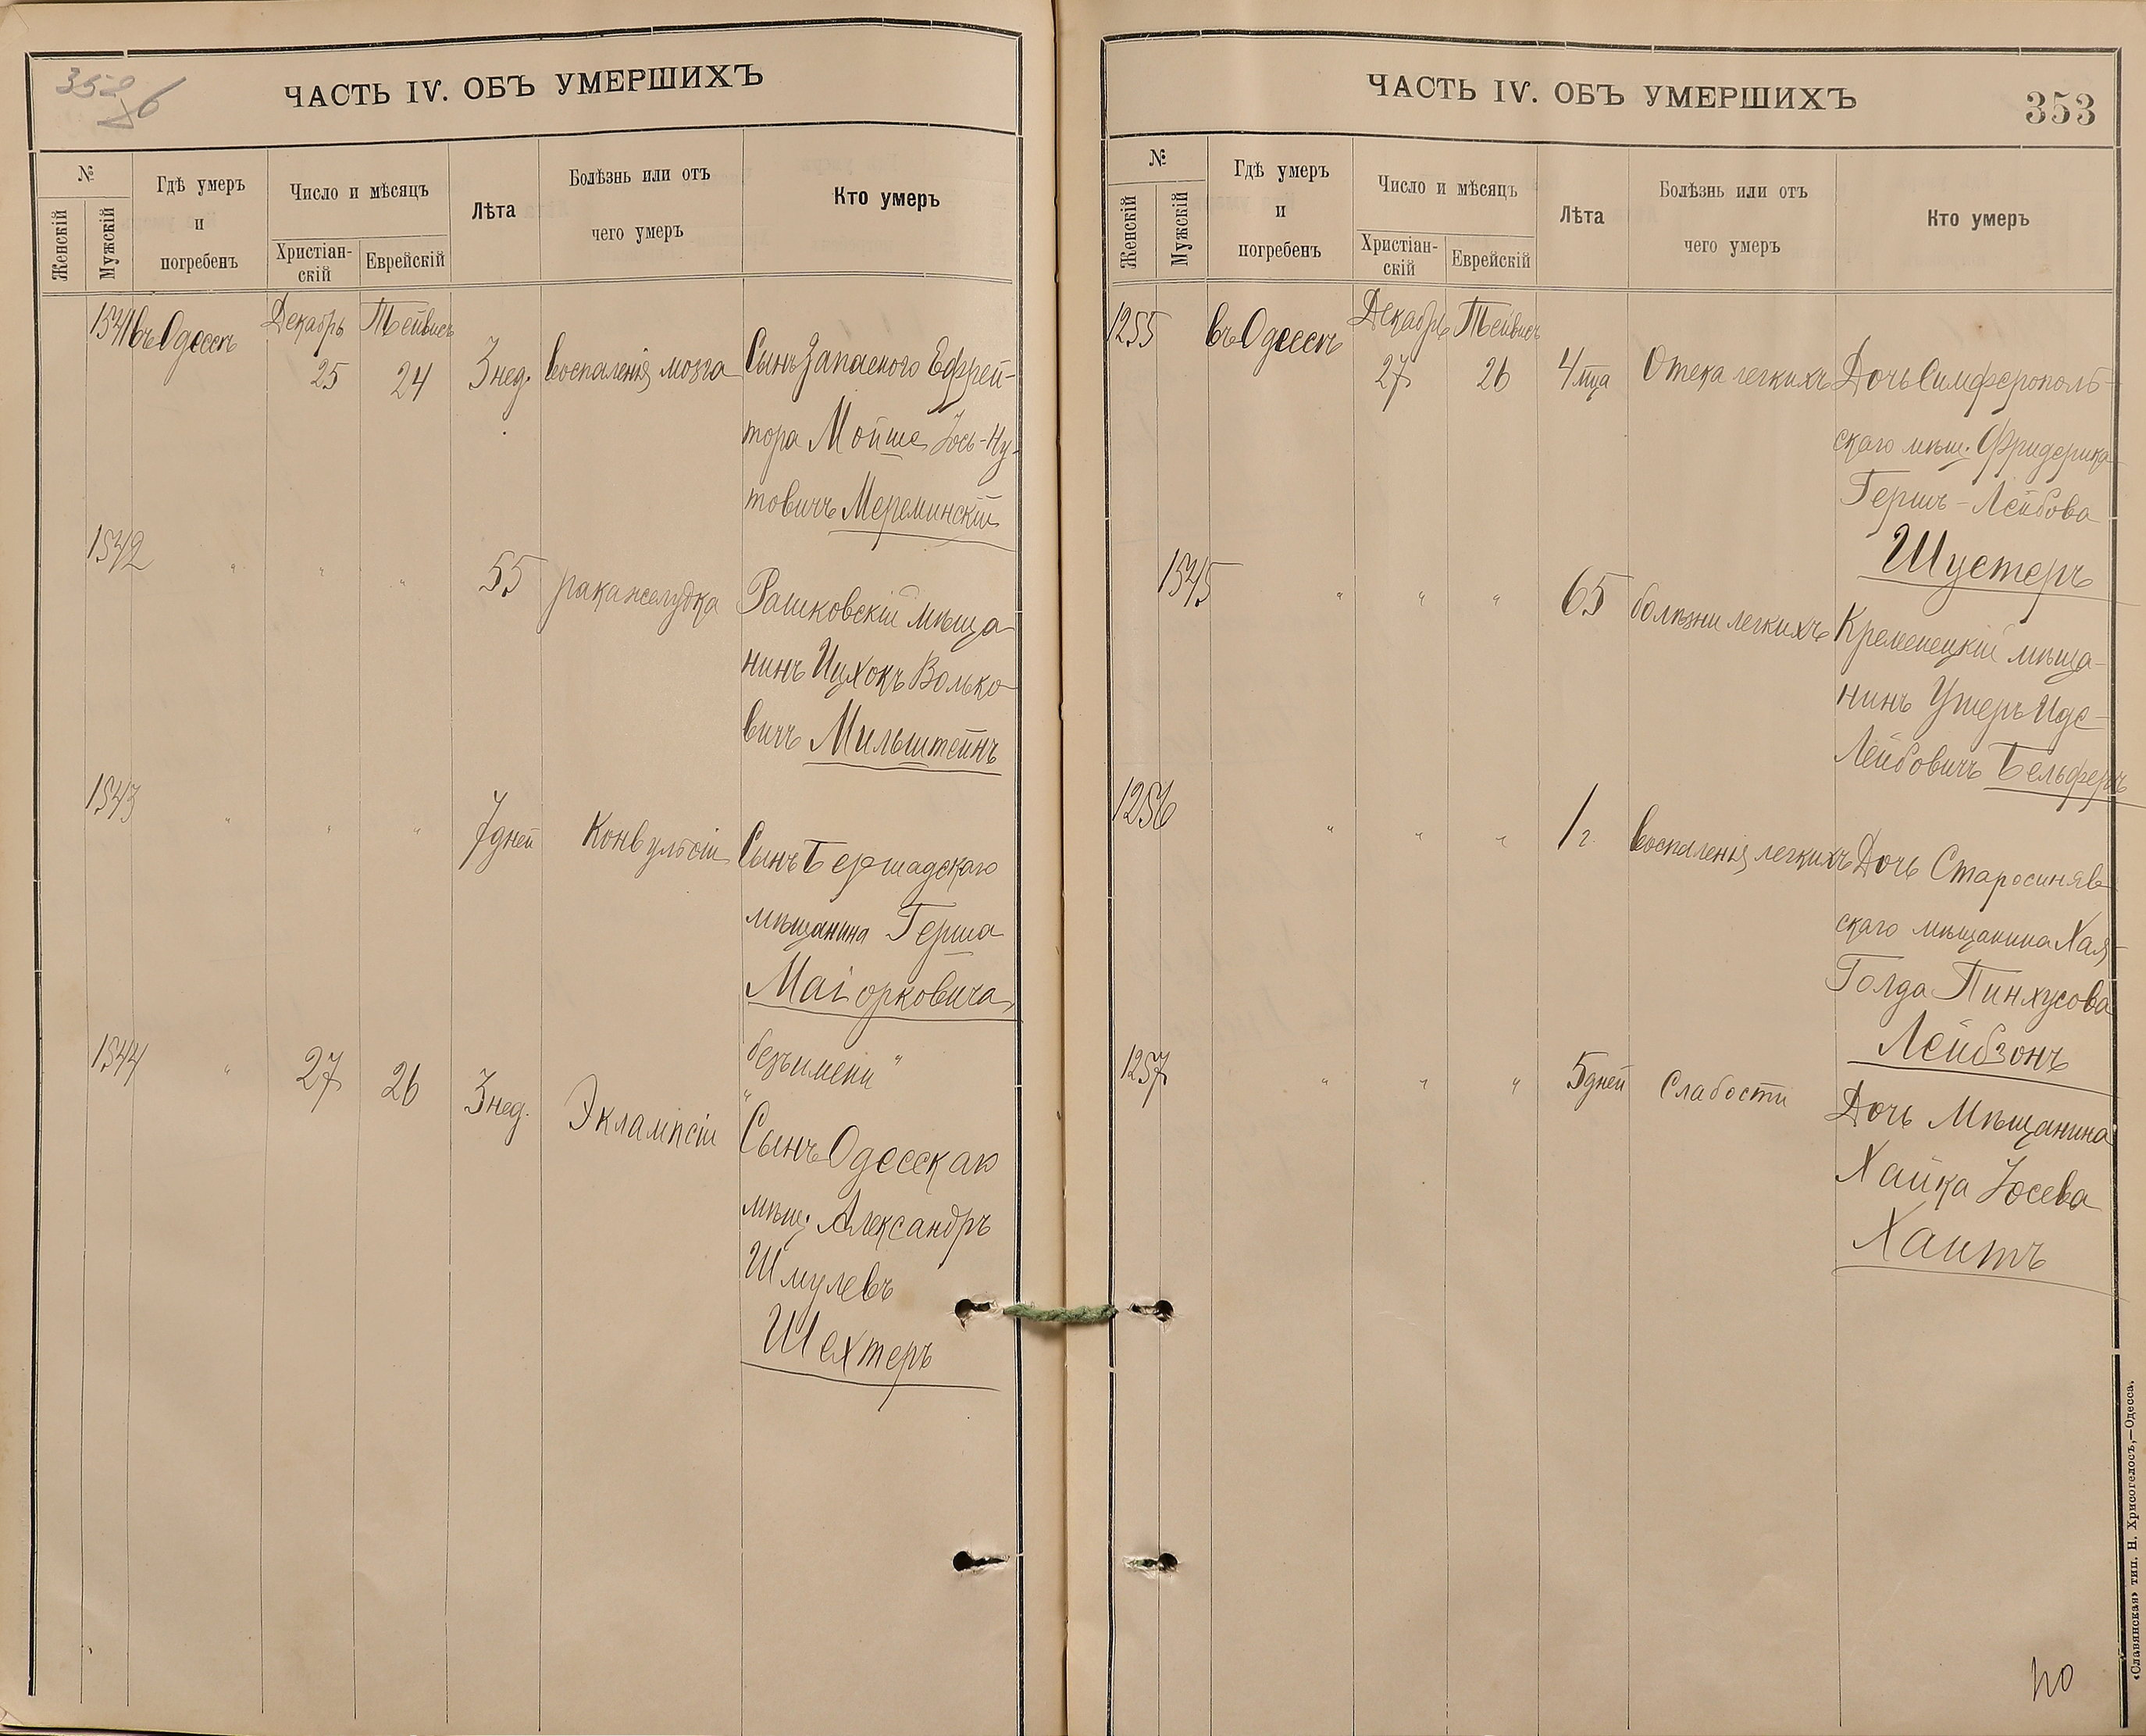 ЧАСТЬ IV. ОБЪ УМЕРШИХЪ
№
Женскій
Мужскій
Гдѣ умеръ
и
погребенъ
Число и мѣсяцъ
Христіан-
скій
Еврейскій
Лѣта
Болѣзнь или отъ
чего умеръ
Кто умеръ
1541 въ Одессѣ Декабрь Тейвисъ
25 24 3 нед. воспаленія мозга Сынъ Запасного Ефрей-
тора Мойше Іось-Ну-
товичъ Мереминскій
1542 " " " 55 рака желудка Рашковскій мѣща
нинъ Ицхокъ Волько-
вичъ Мильштейнъ
1543 " " " 7 дней Конвульсіи Сынъ Бершадскаго
мѣщанина Герша
Маіорковича
безъимени "
1544 " 27 26 3 нед. Экламисіи "Сынъ Одесскаго
мѣщ. Александръ
Шмулевъ
Шехтеръ
ЧАСТЬ IV. ОБЪ УМЕРШИХЪ
353
№
Женскій
Мужскій
Гдѣ умеръ
и
погребенъ
Число и мѣсяцъ
Христіан-
скій
Еврейскій
Лѣта
Болѣзнь или отъ
чего умеръ
Кто умеръ
1255 въ Одессѣ Декабрь Тейвисъ
27 26 4 мца Отека легкихъ Дочь Симферополь-
скаго мѣщ. Фридерика
Гершъ-Лейбова
Шустеръ
1545 " " " 65 болѣзни легкихъ Кременецкій мѣща-
нинъ Ушеръ Иде-
Лейбовичъ Бельферъ
1256 " " " 1 г. воспаленія легкихъ Дочь Старосиняв-
скаго мѣщанина Хая-
Голда Пинхусова
Лейбзонъ
1257 " " " 5 дней Слабости Дочь Мѣщанина
Хайка Іосева
Хаитъ
«Славянская» тип. Н. Хрисогелосъ,—Одесса.